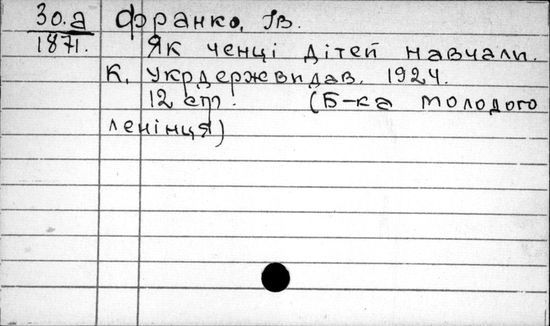 30.а Франко, Ів.
1871. Як ченці дітей навчали.
К. Укрдержвидав. 1924.
12 стр. (Б-ка молодого
ленінця)